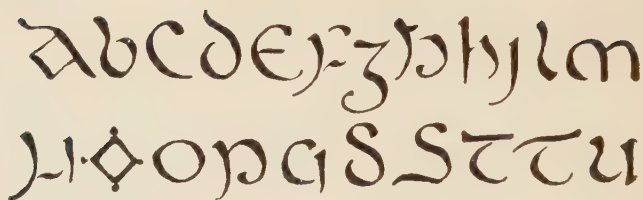 AbCdEFʒhhjlm
N◇OpGSSTTU